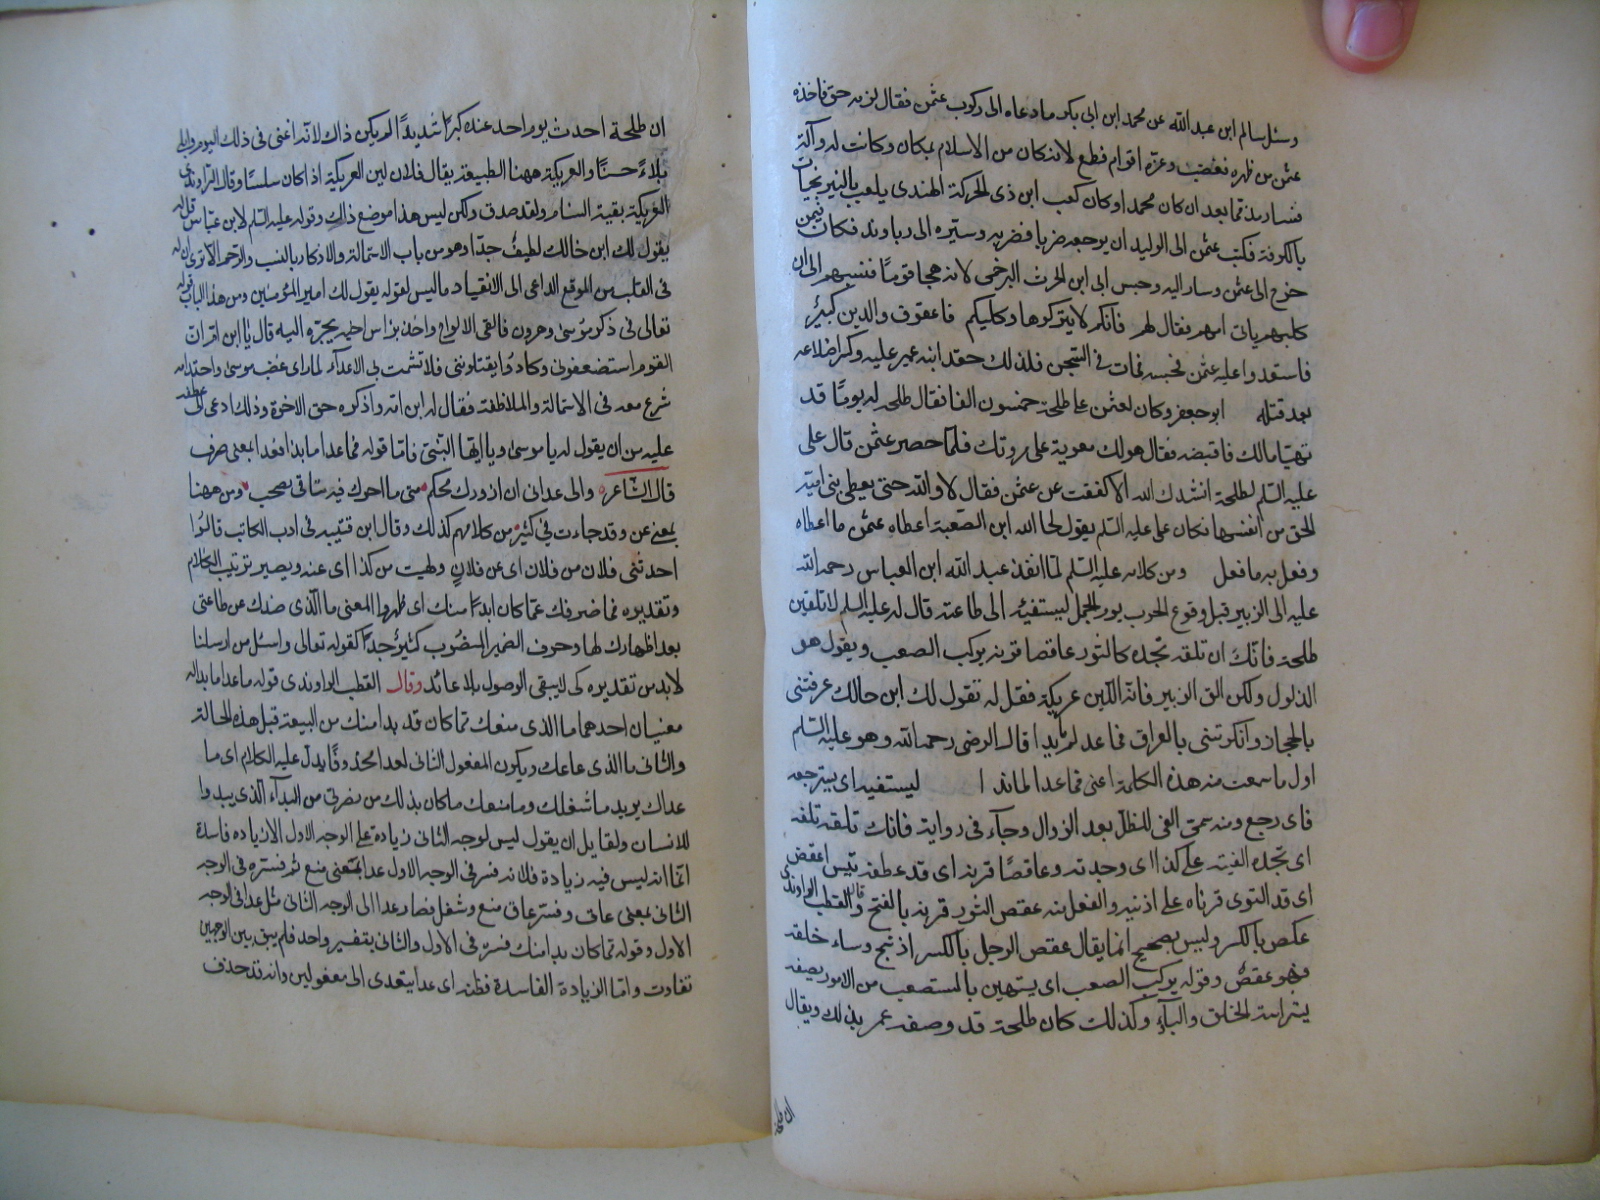 وسئل سالم ابن عبد الله عن محمد ابن ابى بكر ما دعاه الى ركوب عثمن فقال لزمه حق فاخذه
عثمن من ظهره فغضب وغره اقوام فطمع لانه كان من الاسلام بمكان وكانت له دالة
فصار مذمما بعد ان كان محمدا وكان كعب ابن ذى الحركة الهندى يلعب بالنيرنجيات
بالكوفة فكتب عثمن الى الوليد ان يوجعه ضربا فضربه وسيره الى دباوند فكان فيمن
خرج الى عثمن وسار اليه وحبس ابى ابن الحرث البرجمى لانه هجا قوما فنسبهم الى ان
كلبهم ياتى امهم فقال لهم فانكم لا يتركوها وكلبكم فا عقوق والدين كبير
فاستعدوا عليه عثمن فحبسه فمات فى السجن فلذلك حقد ابنه عمير عليه وكسر اضلاعه
بعد قتله ابو جعفر وكان لعثمن على طلحة خمسون الفا فقال طلحه له يوما قد
تهيا مالك فاقبضه فقال هو لك معونة على مروتك فلما حصر عثمن قال على
عليه السلم لطلحة انشدك الله الا كففت عن عثمن فقال لا والله حتى يعطى بنى امية
الحق من انفسها فكان على عليه السلم يقول لحا الله ابن الصعبة اعطاه عثمن ما اعطاه
وفعل به ما فعل ومن كلامه عليه السلم لما انفذ عبد الله ابن العباس رحمه الله
عليه الى الزبير قبل وقوع الحرب يوم الجمل ليستفيئه الى طاعته قال له عليه السلم لا تلقين
طلحة فانك ان تلقه تجده كالثور عاقصا قرنه يركب الصعب ويقول هو
الذلول ولكن الق الزبير فانه الين عريكة فقل له تقول لك ابن خالك عرفتنى
بالحجاز وانكرتنى بالعراق فما عدا مما بدا قال الرضى رحمه الله وهو عليه السلم
اول ما سمعت منه هذه الكلمة اعنى فما عدا مما بدا ليستفيه اى يسترجعه
فاى رجع ومنه سمى الفى للظل بعد الزوال وجآء فى رواية فانك تلقه تلفه
اى تجده الفيته على كذا اى وجدته وعاقصا قرنه اى قد عطفه تيس اعقص
اى قد التوى قرناه على اذنيه والفعل منه عقص الثور قرنه بالفتح وقال القطب الراوندى
عكص بالكسر وليس بصحيح انما يقال عقص الرجل بالكسر اذ شح وساء خلقه
فهو عقص وقوله يركب الصعب اى يستهين بالمستصعب من الامور يصفه
بشراسة الخلق والبأو وكذلك كان طلحة قد وصفه عمر بذلك ويقال
ان طلحة
ان طلحة احدث يوم احد عنده كبرا شديدا لم يكن ذاك لانه اغنى فى ذلك اليوم وابلى
بلاء حسنا والعريكة ههنا الطبيعة يقال فلان لين العريكة اذا كان سلسا وقال الراوندى
العريكة بقية السنام ولقد صدق ولكن ليس هذا موضع ذاك وقوله عليه السلم لابن عباس قل له
يقول لك ابن خالك لطيف جدا وهو من باب الاستمالة والاذكار بالنسب والرحم الا ترى ان له
فى القلب من الموقع الداعى الى الانقياد ما ليس لقوله يقول لك امير المؤمنين ومن هذا الباب قوله
تعالى فى ذكر موسى وهرون فالقى الالواح واخذ براس اخيه يجره اليه قال يا ابن ام ان
القوم استضعفونى وكادوا يقتلوننى فلا تشمت بى الاعدآء لما راى غضب موسى واحتدامه
شرع معه فى الاستمالة والملاطفة فقال له ابن ام واذكره حق الاخوة وذلك ادعى الى عطفه
عليه من ان يقول له يا موسى ويا ايها النبى فاما قوله فما عدا مما بدا فعدا بمعنى صرف
قال الشاعر والى عدانى ان ازورك محكم متى ما احرك فيه ساقى يصحب ومن ههنا
بمعنى عن وقد جاءت فى كثير من كلامهم كذلك وقال ابن قتيبه فى ادب الكاتب قالوا
احدثنى فلان من فلان اى عن فلان ولهيت من كذا اى عنه ويصير ترتيب الكلام
وتقديره فما صرفك عما كان ابدا منك اى ظهر والمعنى ما الذى صدك عن طاعتى
بعد اظهارك لها وحذف الضمير المنصوب كثير جدا كقوله تعالى واسئل من ارسلنا
لا بد من تقديره كى لا يبقى الوصول بلا عائد وقال القطب الراوندى قوله ما عدا مما بدا له
معنيان احدهما ما الذى منعك مما كان قد بدا منك من البيعة قبل هذه الحالة
والثانى ما الذى عاقك ويكون المفعول الثانى لعدا محذوفا يدل عليه الكلام اى ما
عداك يريد ما شغلك وما منعك ما كان بذلك من نصرتى من البدآء الذى يبدوا
للانسان ولقايل ان يقول ليس لوجه الثانى زيادة على الوجه الاول الا زياده فاسدة
اما انه ليس فيه زيادة فلانه فسر فى الوجه الاول عدا بمعنى منع ثم فسره فى الوجه
الثانى بمعنى عاق وفسر عاق منع وشغل فصار عدا الى الوجه الثانى مثل عدا فى الوجه
الاول وقوله مما كان بدا منك فسره فى الاول والثانى بتفسير واحد فلم يبق بين الوجهين
تفاوت واما الزيادة الفاسدة فظنه اى عدا يتعدى الى مفعولين وانه قد حذف